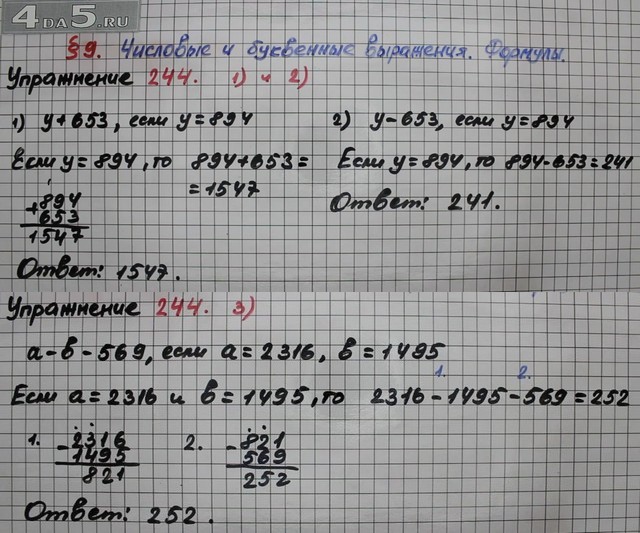 4DA5.RU
§9. Числовые и буквенные выражения. Формулы.
Упражнение 244. 1) и 2)
1) y+653, если y=894
Если y=894, то 894+653=
=1547
+894
653
1547
Ответ: 1547.
2) y-653, если y=894
Если y=894, то 894-653=241
Ответ: 241.
Упражнение 244. 3)
a-в-569, если a=2316, в=1495
1. 2.
Если a=2316 и в=1495, то 2316-1495-569=252
1. -2316
1495
821
2. -821
569
252
Ответ: 252.